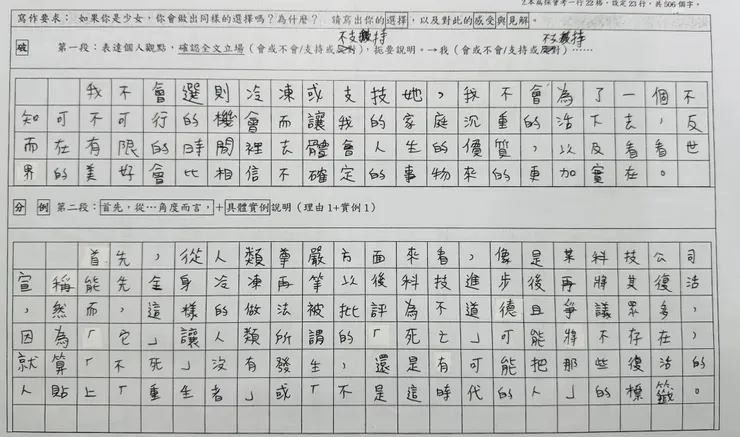 2.本篇採會考一行22格，設定23行，共506個字。
寫作要求：如果你是少女，你會做出同樣的選擇嗎？為什麼？ 請寫出你的選擇，以及對此的感受與見解。
不支持 不支持
破 第一段：表達個人觀點，確認全文立場（會或不會/支持或反對），扼要說明。→我（會或不會/支持或反對）……
我不會選則冷凍或支技她，我不會為了一個不
知可不可行的機會而讓我的家庭沉重的活下去，反
而在有限的時間裡去體會人生的價質，以及看看世
界的美好會比相信不確定的事物來的更加實在。
分 例 第二段：首先，從…角度而言，+具體實例說明（理由1+實例1）
首先，從人類尊嚴方面來看，像是某科技公司
宣稱能先全身冷凍再等以後科技進步後再將其復活
，然而，這樣的做法被批評為不道德且爭議眾多，
因為「它」讓人類所謂的「死亡」可能將不存在，
就算「不死」沒有發生，還是有可能把那些復活的
人貼上「重生者」或「不是這時代的人」的標籤。